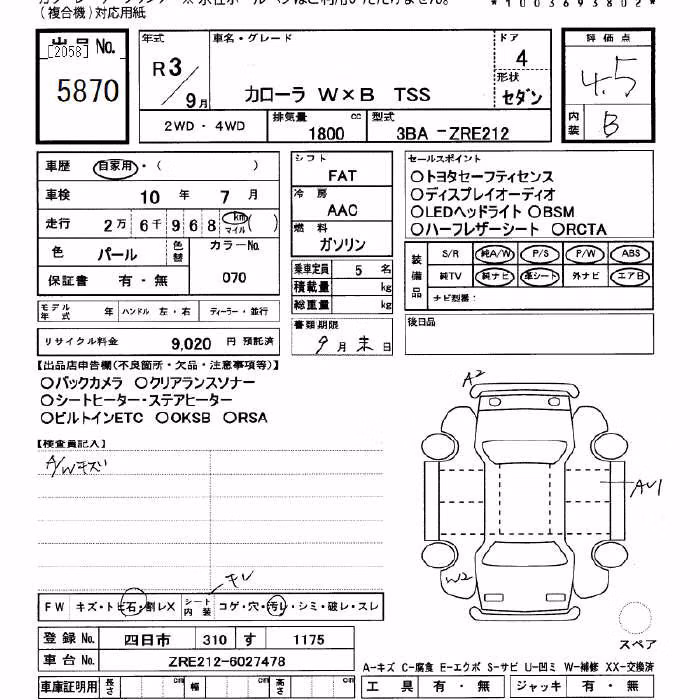 (複合機)対応用紙
*1003693802*
出品 No.
[2058]
5870
年式
R3/9月
車名・グレード
カローラ W×B TSS
ドア
4
形状
セダン
評価点
4.5
内装
B
2WD ・ 4WD
排気量
1800 cc
型式
3BA - ZRE212
車歴 自家用・( )
車検 10 年 7 月
走行 2万 6千 9 6 8 km マイル ( )
色 パール 色替 カラーNo. 070
保証書 有・無
モデル年式 年 ハンドル 左・右 ディーラー・並行
リサイクル料金 9,020 円 預託済
シフト
FAT
冷房
AAC
燃料
ガソリン
乗車定員 5 名
積載量 kg
総重量 kg
書類期限
9月末日
セールスポイント
○トヨタセーフティセンス
○ディスプレイオーディオ
○LEDヘッドライト ○BSM
○ハーフレザーシート ○RCTA
装備品
S/R 純A/W P/S P/W ABS
純TV 純ナビ 革シート 外ナビ エアB
ナビ型番:
後日品
【出品店申告欄(不良箇所・欠品・注意事項等)】
○バックカメラ ○クリアランスソナー
○シートヒーター・ステアヒーター
○ビルトインETC ○OKSB ○RSA
【検査員記入】
A/Wキズ
A2
AU1
W2
スペア
FW キズ・トビ石・割レX シート内装 コゲ・穴・汚レ・シミ・破レ・スレ
登録No. 四日市 310 す 1175
車台No. ZRE212-6027478
車庫証明用 長さ cm 幅 cm 高さ cm
A-キズ C-腐食 E-エクボ S-サビ U-凹ミ W-補修 XX-交換済
工具 有・無 ジャッキ 有・無